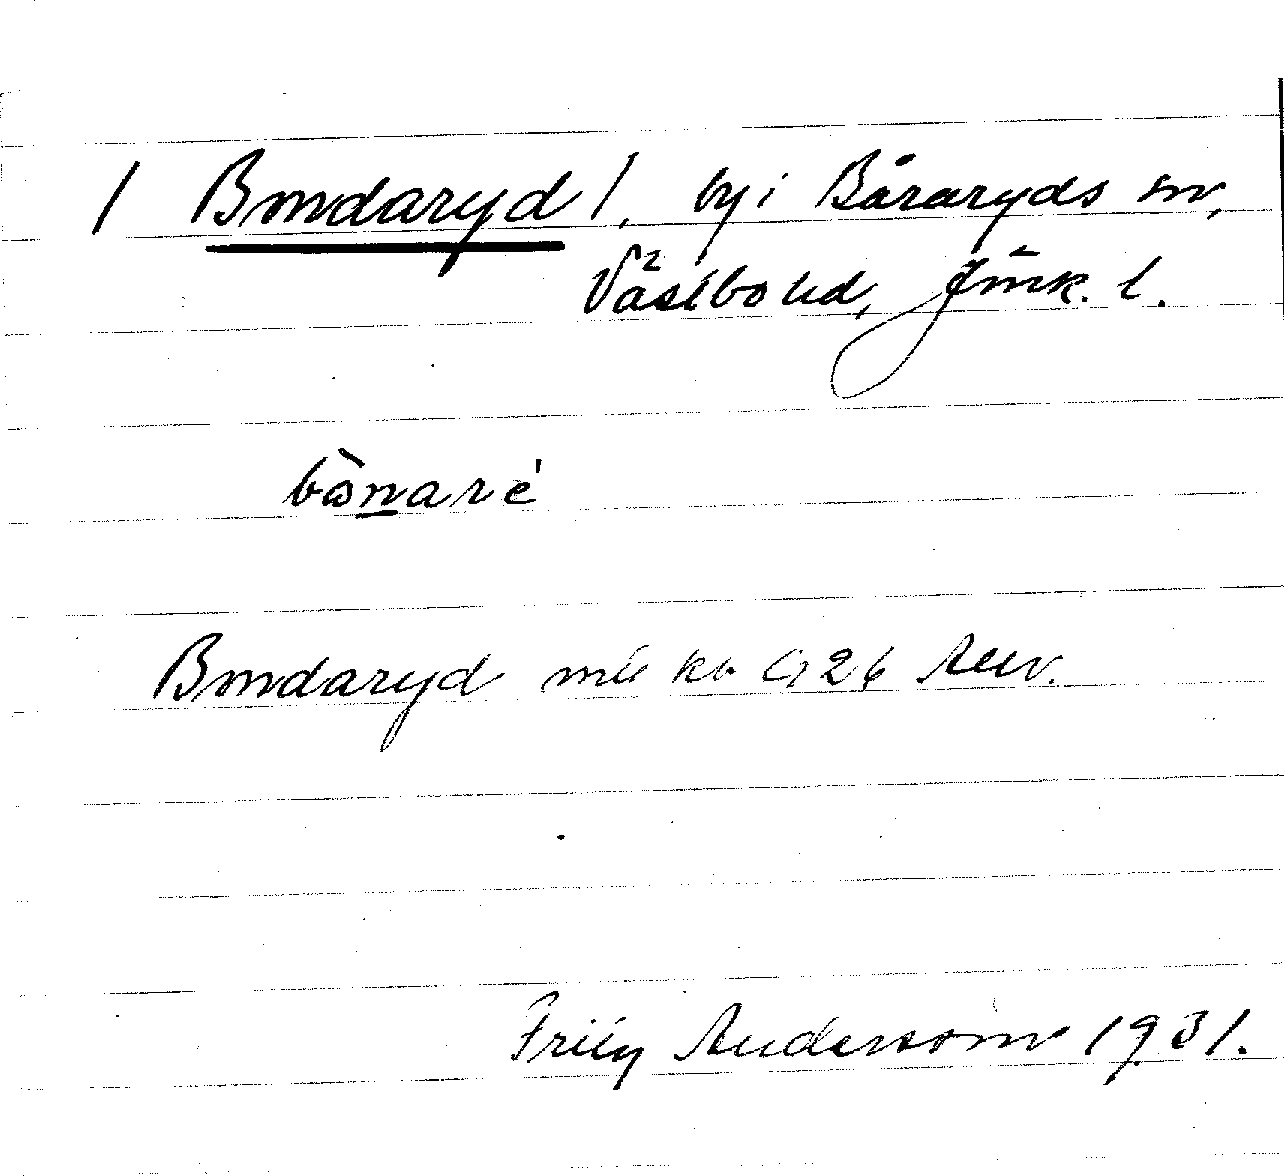 / Bondaryd /, by i Båraryds sn,
Västbo hd, Jönk. l.
bònaré
Bondaryd
Fritz Andersson 1931.